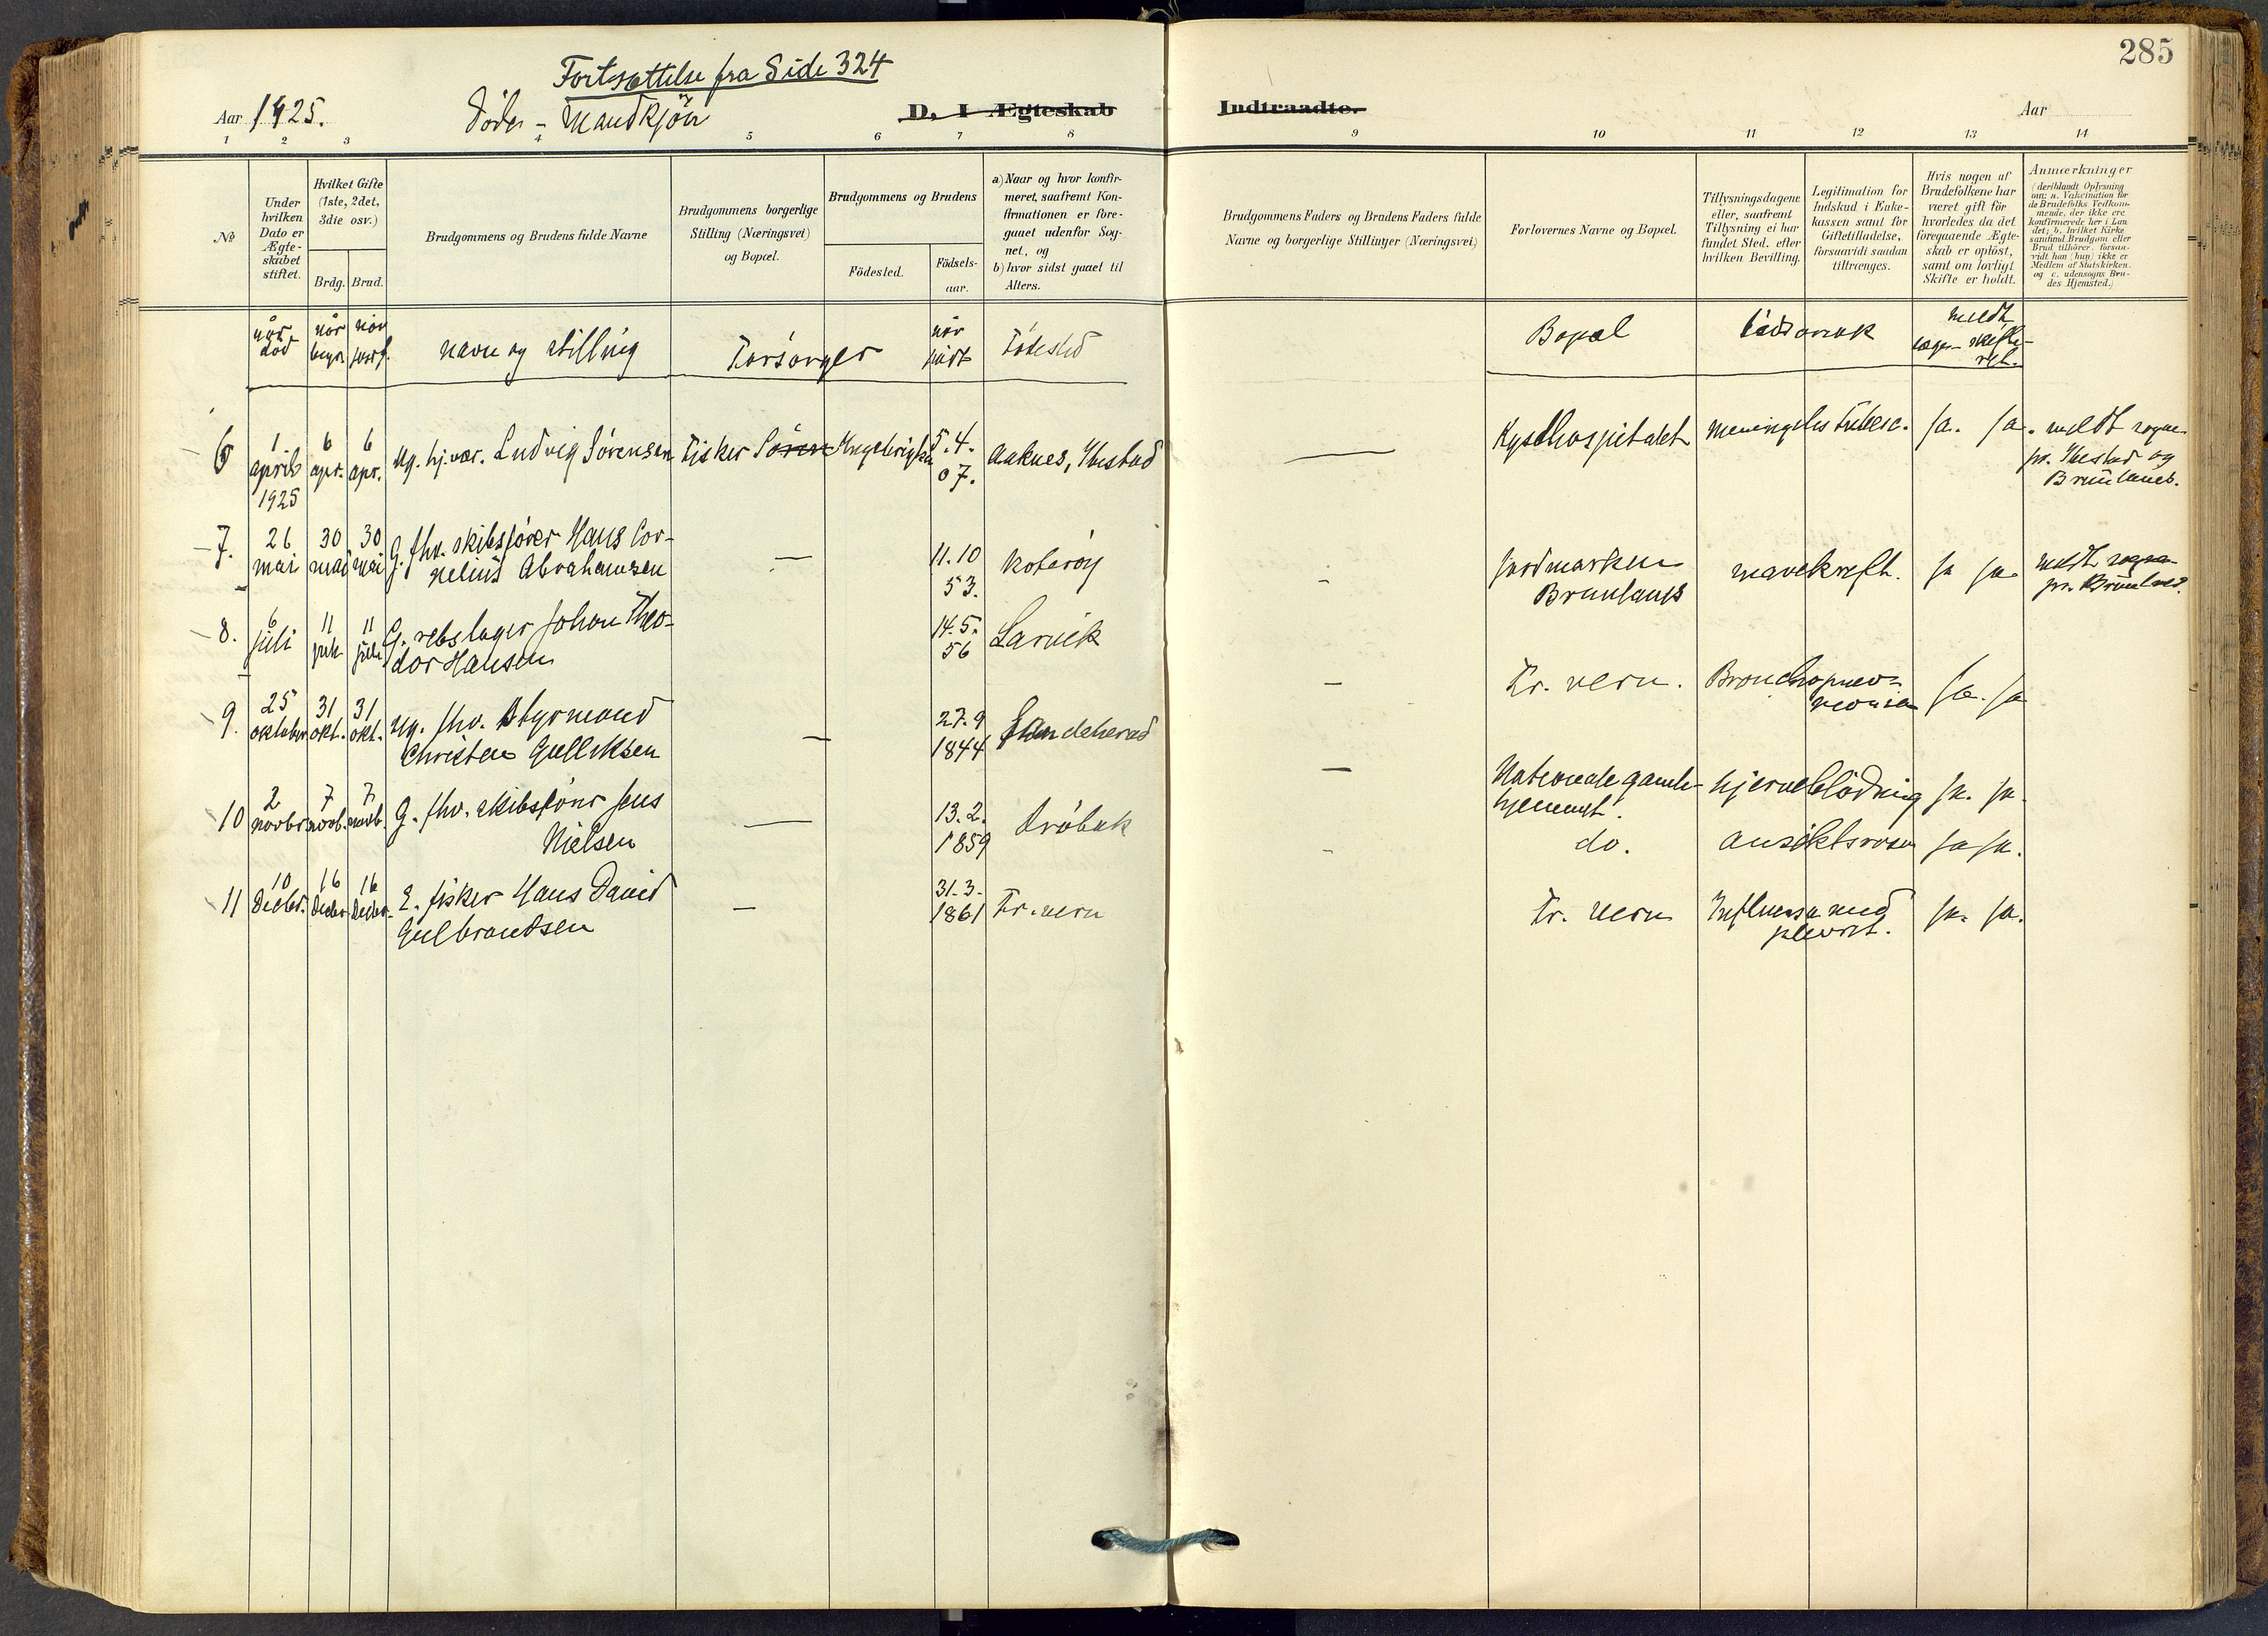 285
Fortsættelse fra Side 324
Aar 1925.
Døde - Mandkjøn
D. I Ægteskab
Indtraadte.
Aar
1 2 3 4 5 6 7 8 9 10 11 12 13 14
№
Under
hvilken
Dato er
Ægte-
skabet
stiftet.
Hvilket Gifte
(1ste, 2det,
3die osv.)
Brdg. Brud.
Brudgommens og Brudens fulde Navne
Brudgommens borgerlige
Stilling (Næringsvei)
og Bopæl.
Brudgommens og Brudens
Födested.
Födsels-
aar.
a) Naar og hvor konfir-
meret, saafremt Kon-
firmationen er fore-
gaaet udenfor Sog-
net, og
b) hvor sidst gaaet til
Alters.
Brudgommens Faders og Brudens Faders fulde
Navne og borgerlige Stillinger (Næringsvei)
Forlovernes Navne og Bopæl.
Tillysningsdagene
eller, saafremt
Tillysning ei har
fundet Sted, efter
hvilken Bevilling.
Legitimation for
Indskud i Enke-
kassen samt for
Giftetilladelse,
forsaavidt saadan
tiltrænges.
Hvis nogen af
Brudefolkene har
været gift för
hvorledes da det
foregaaende Ægte-
skab er oplöst,
samt om lovligt
Skifte er holdt.
Anmærkninger
(deriblandt Oplysning
om: a. Vakcination for
de Brudefolks Vedkom-
mende, der ikke ere
konfirmerede her i Lan-
det; b. hvilket Kirke-
samfund Brudgom eller
Brud tilhörer, forsaa-
vidt han (hun) ikke er
Medlem af Statskirken,
og c. udensogns Bru-
des Hjemsted.)
når
död
når
begr.
når
jordf.
navn og stilling
Forsørger
når
født
Fødested
Bopæl
Dødsårsak
meldt
læge- skifte-
ret.
6
1.
april
1925
6
apr.
6
apr.
Ug. hj.vær. Ludvig Sørensen
Fisker Sören Ingebrigtsen
5.4.
07.
Aaknes, Ibestad
Kysthospitalet
Meningitis Tuberc.
ja. ja.
meldt sogne-
pr. Ibestad og
Brunlanes.
7.
26
mai
30
mai
30
mai
G. fhv. skibsfører Hans Cor-
nelius Abrahamsen
11.10
53.
Roterøy
Jordmarken
Brunlanes
mavekreft.
ja ja.
meldt sogne-
pr. Brunlanes.
8.
6
juli
11
juli
11
juli
G. rebslager Johan Theo-
dor Hansen
14.5.
56
Larvik
Fr. vern.
Bronchopnev-
monia
ja. ja
9.
25
oktober
31
okt.
31
okt.
Ug. fhv. Styrmand
Christen Gulliksen
27.9
1844
Sandeherad
Nationale gamle-
hjemmet.
hjerneblödning
ja. ja.
10
2
novbr
7
novb.
7
novb.
G. fhv. skibsförer Jens
Nielsen
13.2.
1859
Dröbak
do.
ansiktsrosen
ja ja.
11
10
Decbr.
16
Decbr
16
Decbr.
E. fisker Hans David
Gulbrandsen
31.3.
1861
Fr. vern
Fr. vern
Influensa med
plevrit.
ja. ja.